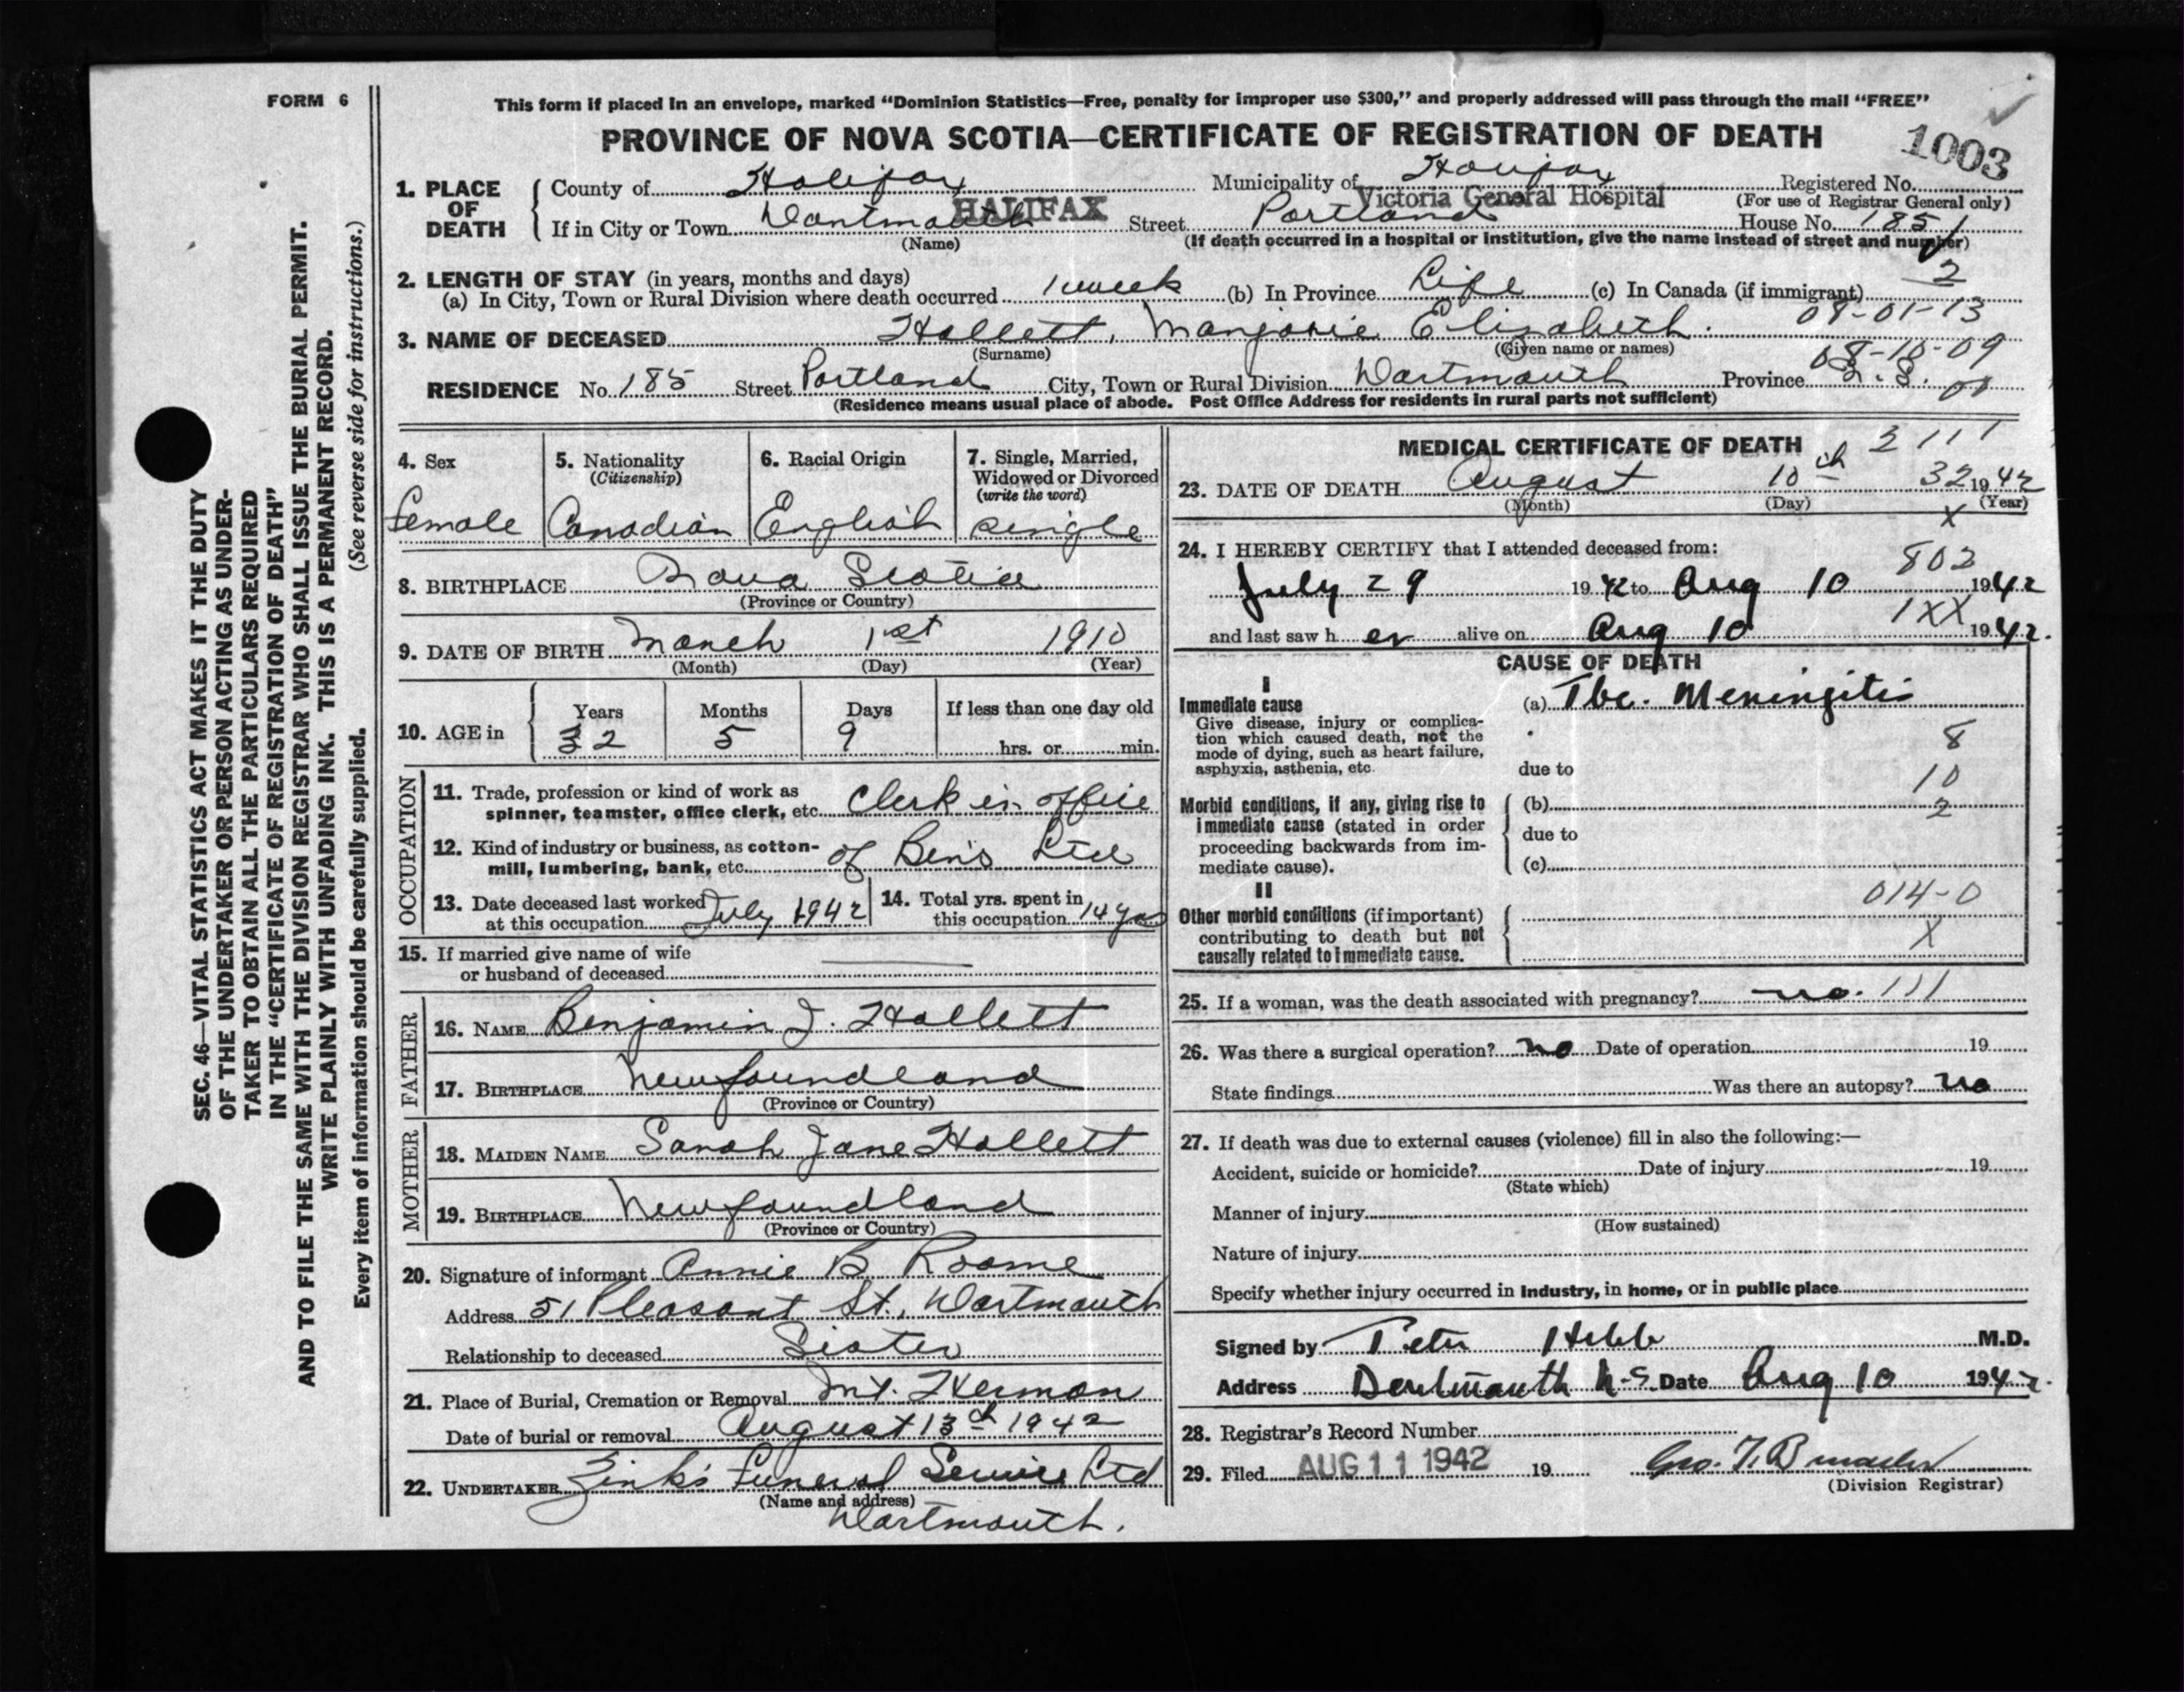 FORM 6
This form if placed in an envelope, marked “Dominion Statistics—Free, penalty for improper use $300,” and properly addressed will pass through the mail “FREE”
PROVINCE OF NOVA SCOTIA—CERTIFICATE OF REGISTRATION OF DEATH
1003
1. PLACE OF DEATH
County of Halifax Municipality of Halifax Registered No.
Victoria General Hospital (For use of Registrar General only)
If in City or Town Dartmouth HALIFAX Street Portland House No. 185
(Name) (If death occurred in a hospital or institution, give the name instead of street and number)
2. LENGTH OF STAY (in years, months and days)
(a) In City, Town or Rural Division where death occurred 1 week (b) In Province Life (c) In Canada (if immigrant) 2
09-01-13
3. NAME OF DECEASED Hallett, Marjorie Elizabeth.
(Surname) (Given name or names)
08-10-09
RESIDENCE No. 185 Street Portland City, Town or Rural Division Dartmouth Province N.S.
(Residence means usual place of abode. Post Office Address for residents in rural parts not sufficient)
4. Sex
female
5. Nationality
(Citizenship)
Canadian
6. Racial Origin
English
7. Single, Married, Widowed or Divorced
(write the word)
single
8. BIRTHPLACE Nova Scotia
(Province or Country)
9. DATE OF BIRTH March 1st 1910
(Month) (Day) (Year)
10. AGE in
Years Months Days If less than one day old
32 5 9 hrs. or min.
OCCUPATION
11. Trade, profession or kind of work as
spinner, teamster, office clerk, etc. Clerk in office
12. Kind of industry or business, as cotton-
mill, lumbering, bank, etc. of Ben's Ltd
13. Date deceased last worked
at this occupation July 1942
14. Total yrs. spent in
this occupation 14 yrs
15. If married give name of wife
or husband of deceased
FATHER
16. NAME Benjamin J. Hallett
17. BIRTHPLACE Newfoundland
(Province or Country)
MOTHER
18. MAIDEN NAME Sarah Jane Hallett
19. BIRTHPLACE Newfoundland
(Province or Country)
20. Signature of informant Annie B Roome
Address 51 Pleasant St., Dartmouth
Relationship to deceased Sister
21. Place of Burial, Cremation or Removal Mt. Hermon
Date of burial or removal August 13th 1942
22. UNDERTAKER Zink's Funeral Service Ltd
(Name and address)
Dartmouth.
MEDICAL CERTIFICATE OF DEATH
3111
23. DATE OF DEATH August 10th 32 1942
(Month) (Day) (Year)
X
24. I HEREBY CERTIFY that I attended deceased from:
803
July 29 1942 to Aug 10 1942
1XX
and last saw h er alive on Aug 10 1942.
CAUSE OF DEATH
I
Immediate cause (a) Tbc. Meningitis
Give disease, injury or complica-
tion which caused death, not the
mode of dying, such as heart failure,
asphyxia, asthenia, etc. due to
8
10
2
Morbid conditions, if any, giving rise to (b)
immediate cause (stated in order
proceeding backwards from im- due to
mediate cause). (c)
II
014-0
Other morbid conditions (if important)
contributing to death but not
causally related to immediate cause.
X
25. If a woman, was the death associated with pregnancy? no. 111
26. Was there a surgical operation? no Date of operation 19
State findings Was there an autopsy? no
27. If death was due to external causes (violence) fill in also the following:—
Accident, suicide or homicide? Date of injury 19
(State which)
Manner of injury
(How sustained)
Nature of injury
Specify whether injury occurred in Industry, in home, or in public place
Signed by Peter Hebb M.D.
Address Dartmouth N.S. Date Aug 10 1942.
28. Registrar's Record Number
29. Filed AUG 11 1942 19
Geo. T.
(Division Registrar)
SEC. 46—VITAL STATISTICS ACT MAKES IT THE DUTY
OF THE UNDERTAKER OR PERSON ACTING AS UNDER-
TAKER TO OBTAIN ALL THE PARTICULARS REQUIRED
IN THE “CERTIFICATE OF REGISTRATION OF DEATH”
AND TO FILE THE SAME WITH THE DIVISION REGISTRAR WHO SHALL ISSUE THE BURIAL PERMIT.
WRITE PLAINLY WITH UNFADING INK. THIS IS A PERMANENT RECORD.
Every item of information should be carefully supplied. (See reverse side for instructions.)